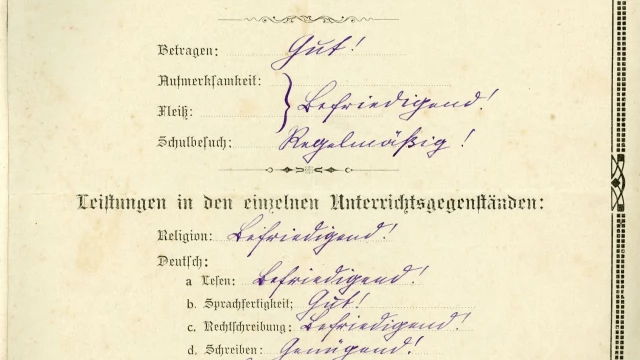 Betragen: Gut!
Aufmerksamkeit:
Fleiß: Befriedigend!
Schulbesuch: Regelmäßig!
Leistungen in den einzelnen Unterrichtsgegenständen:
Religion: Befriedigend!
Deutsch:
a Lesen: Befriedigend!
b. Sprachfertigkeit: Gut!
c. Rechtschreibung: Befriedigend!
d. Schreiben: Genügend!